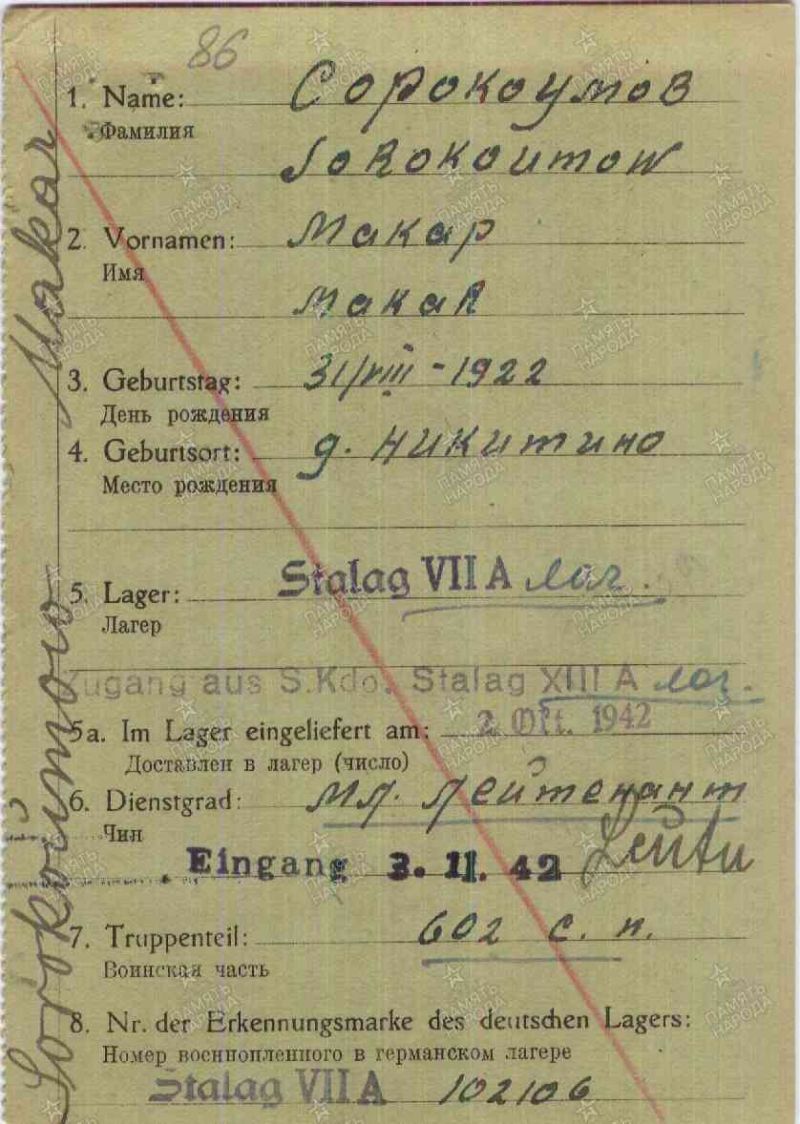 86
1. Name: Сорокоумов
Фамилия
Sorokoumow
2. Vornamen: Макар
Имя
Makar
3. Geburtstag: 31/VIII - 1922
День рождения
4. Geburtsort: д. Никитино
Место рождения
5. Lager: Stalag VII A лаг.
Лагер
Zugang aus S.Kdo. Stalag XIII A лаг.
5a. Im Lager eingeliefert am: 2. Okt. 1942
Доставлен в лагер (число)
6. Dienstgrad: Мл. лейтенант
Чин
Eingang 3. 11. 42
7. Truppenteil: 602 с. п.
Воинская часть
8. Nr. der Erkennungsmarke des deutschen Lagers:
Номер военнопленного в германском лагере
Stalag VII A 102106
Makar
ПАМЯТЬ
НАРОДА